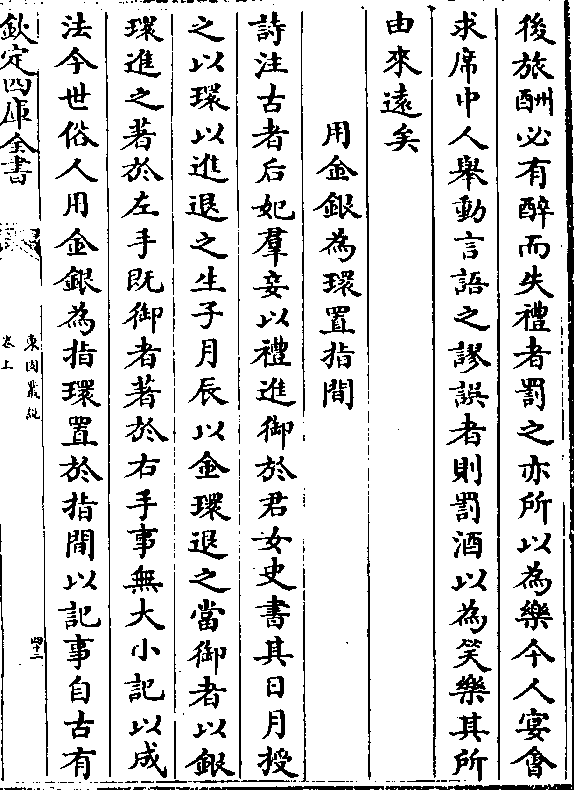 後旅酬必有醉而失禮者罰之亦所以為樂今人宴會
求席中人舉動言語之謬誤者則罰酒以為笑樂其所
由來遠矣
用金銀為環置指間
詩注古者后妃羣妾以禮進御於君女史書其日月授
之以環以進退之生子月辰以金環退之當御者以銀
環進之著於左手既御者著於右手事無大小記以成
法今世俗人用金銀為指環置於指間以記事自古有
欽定四庫全書
東園叢說
卷上
四十二